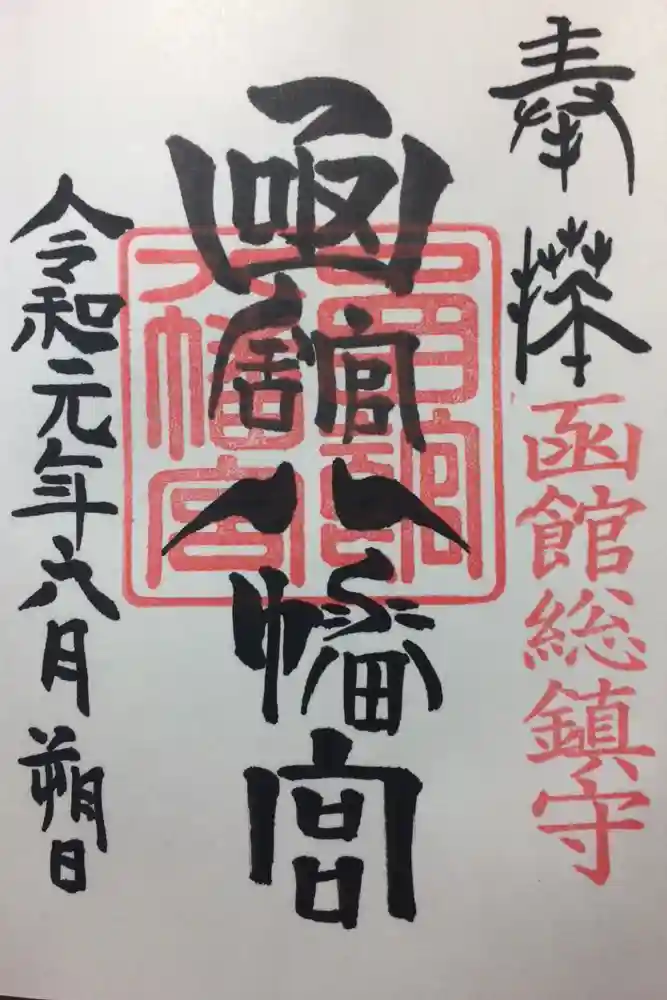 奉拝
函館総鎮守
函館八幡宮
令和元年六月朔日